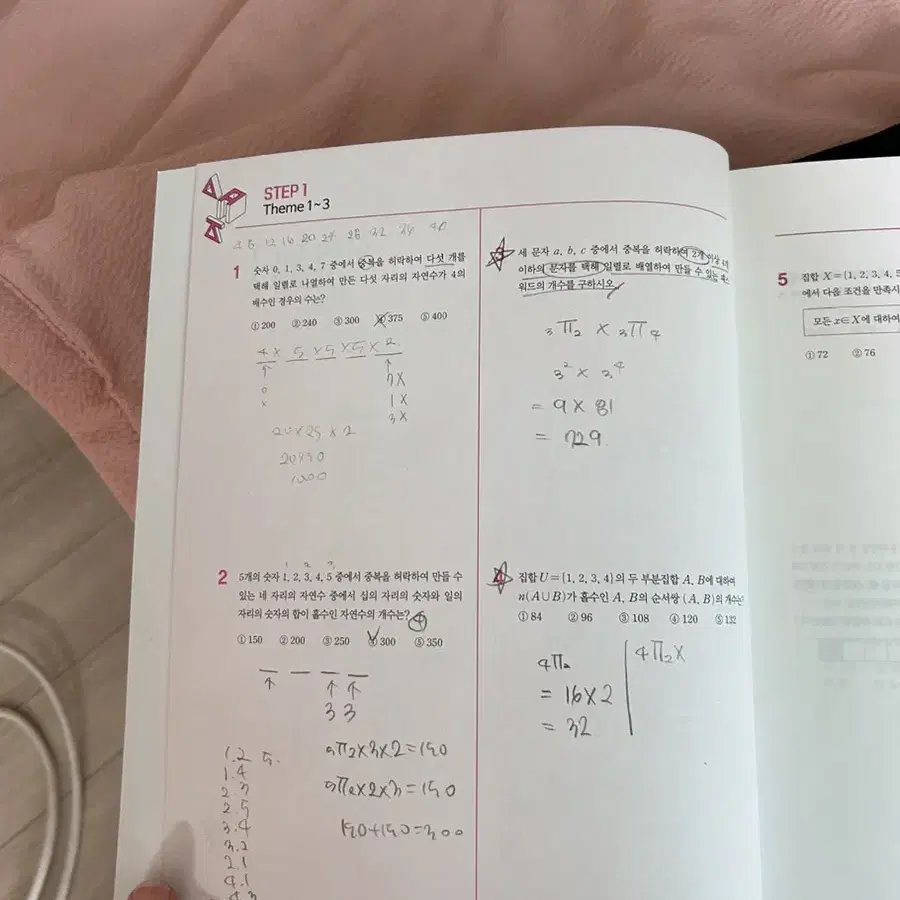 STEP 1
Theme 1~3
12 16 20 24 28 32 36 40
1
숫자 0, 1, 3, 4, 7 중에서 중복을 허락하여 다섯 개를
택해 일렬로 나열하여 만든 다섯 자리의 자연수가 4의
배수인 경우의 수는?
① 200 ② 240 ③ 300 ④ 375 ⑤ 400
4 × 5 × 5 × 5 × 2
↑ ↑
0 7 X
x 1 X
3 X
20 × 25 × 2
20×50
1000
2
5개의 숫자 1, 2, 3, 4, 5 중에서 중복을 허락하여 만들 수
있는 네 자리의 자연수 중에서 십의 자리의 숫자와 일의
자리의 숫자의 합이 홀수인 자연수의 개수는? ④
① 150 ② 200 ③ 250 ④ 300 ⑤ 350
↑ ↑ ↑
3 3
1.2 5.
1.4
2.3
2.5
3.4
3.2
2.1
4.1
4.3
5Π2×3×2=150
5Π2×2×3=150
150+150=300
3
세 문자 a, b, c 중에서 중복을 허락하여 2개 이상
이하의 문자를 택해 일렬로 배열하여 만들 수 있는
워드의 개수를 구하시오.
3Π2 × 3Π4
3² × 3⁴
= 9 × 81
= 729.
4
집합 U={1, 2, 3, 4}의 두 부분집합 A, B에 대하여
n(A∪B)가 홀수인 A, B의 순서쌍 (A, B)의 개수는?
① 84 ② 96 ③ 108 ④ 120 ⑤ 132
4Π2 4Π2×
= 16×2
= 32
5
집합 X={1, 2, 3, 4, 5
에서 다음 조건을 만족시
모든 x∈X에 대하여
① 72 ② 76